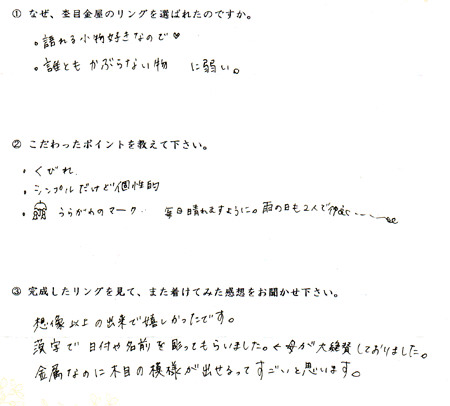 ① なぜ、杢目金屋のリングを選ばれたのですか。
・語れる小物好きなので♥
・誰とも かぶらない物 に弱い。
② こだわったポイントを教えて下さい。
・くびれ
・シンプルだけど個性的
・うらがわのマーク… 毎日晴れますように。雨の日も2人で
③ 完成したリングを見て、また着けてみた感想をお聞かせ下さい。
想像以上の出来で嬉しかったです。
漢字で日付や名前を彫ってもらいました。←母が大絶賛しておりました。
金属なのに木目の模様が出せるってすごいと思います。